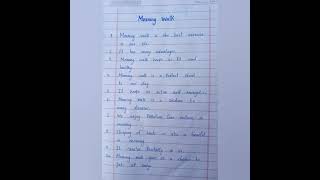 Morning Walk
1. Morning walk is the best exercise
for us.
2. It has many advantages.
3. Morning walk keeps us fit and
healthy.
4. Morning walk is a perfect start
to our day.
5. It keeps us active and energetic.
6. Morning walk is a solution to
many diseases.
7. We enjoy nature in
morning.
8. of birds is also a beautiful
in morning.
9. It positivity in us.
10. Morning walk gives us a chance to
get of